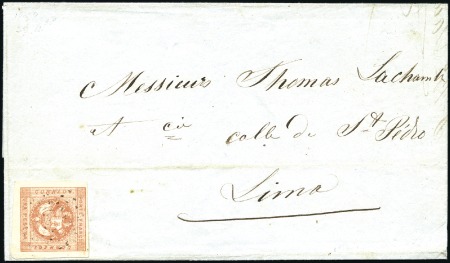 Messieurs Thomas Lachamb
et cie calle de St. Pédro
Lima